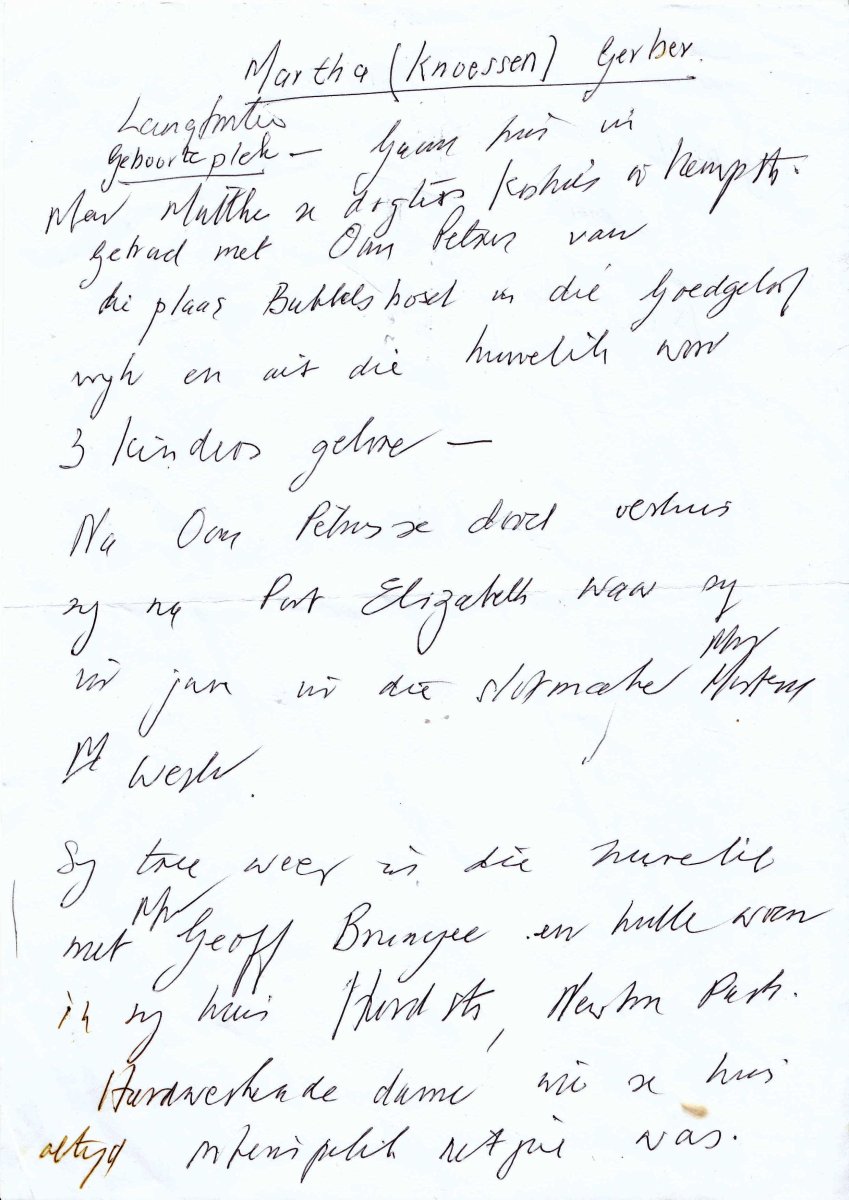 Martha (Knoessen) Gerber.
Langfontein
Geboorteplek — Gaan huis in
Mev Matthee se dogters Koshuis in Kempstr.
Getroud met Oom Petrus van
die plaas Bubbelsbosch in die Goedgeloof
wyk en uit die huwelik word
3 kinders gebore —
Na Oom Petrus se dood verhuis
sy na Port Elizabeth waar sy
vir jare vir die slotmaker Mnr
werk.
Sy tree weer in die huwelik
met Mnr Geoff en hulle woon
in sy huis Hurd str, Newton Park.
Hardwerkende dame wie se huis
altyd netjies was.